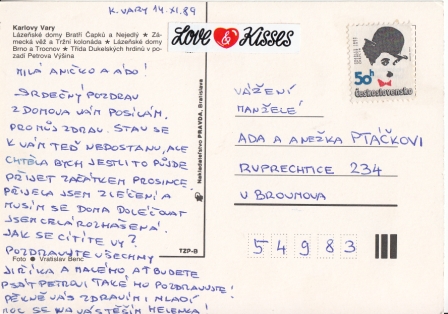 K. VARY 14. XI. 89
Karlovy Vary
Lázeňské domy Bratří Čapků a Nejedlý ★ Zá-
mecká věž a Tržní kolonáda ★ Lázeňské domy
Brno a Trocnov ★ Třída Dukelských hrdinů v po-
zadí Petrova Výšina
MILÁ ANIČKO A ÁĎO!
SRDEČNÝ POZDRAV
Z DOMOVA VÁM POSÍLÁM.
PRO MŮJ ZDRAV. STAV SE
K VÁM TEĎ NEDOSTANU, ALE
CHTĚLA BYCH JESTLI TO PŮJDE
PŘIJET ZAČÁTKEM PROSINCE.
PŘIJELA JSEM Z LÉČENÍ A
MUSÍM SE DOMA DOLÉČOVAT
JSEM CELÁ ROZHÁŠENÁ.
JAK SE CÍTÍTE VY?
POZDRAVUJTE VŠECHNY
JIŘÍKA A MALÉHO, AŤ BUDETE
PSÁT PETROVI, TAKÉ HO POZDRAVUJTE!
PĚKNĚ VÁS ZDRAVÍM I MLADÍ
MOC SE NA VÁS TĚŠÍM HELENKA!
Foto ● Vratislav Benc
TZP-B
Nakladatelství PRAVDA, Bratislava
Love & Kisses
50h
Československo
VÁŽENÍ
MANŽELÉ
ADA A ANEŽKA PTÁČKOVI
RUPRECHTICE 234
U BROUMOVA
5 4 9 8 3